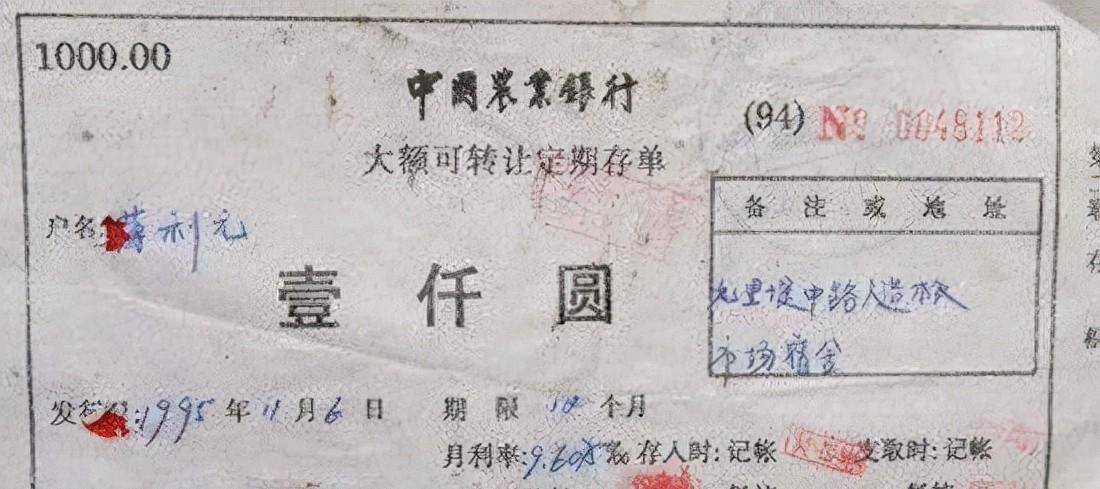 1000.00
中國農業銀行
(94) № 0048112
大额可转让定期存单
户名: 利元
备注或地址
壹仟圆
九里堤中路人造板
市场宿舍
发 1995年11月6日 期限 个月
月利率:9.60 存入时:记帐 支取时:记帐